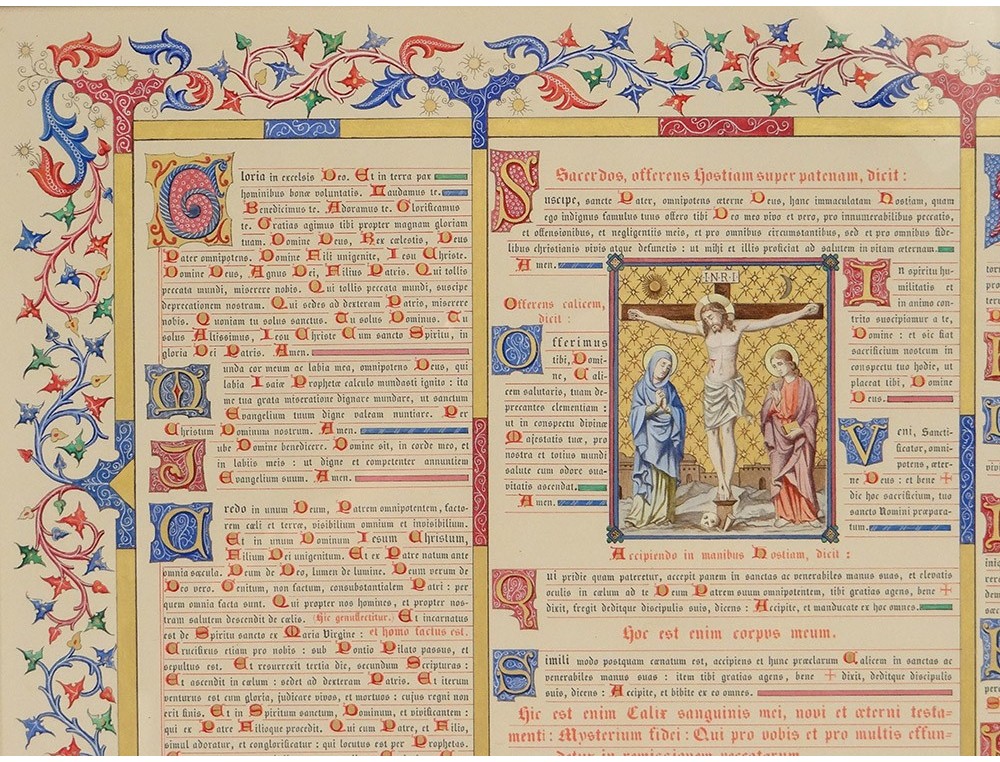 Gloria in excelsis Deo. Et in terra pax
hominibus bonæ voluntatis. Laudamus te.
Benedicimus te. Adoramus te. Glorificamus
te. Gratias agimus tibi propter magnam gloriam
tuam. Domine Deus, Rex cœlestis, Deus
Pater omnipotens. Domine Fili unigenite, Iesu Christe.
Domine Deus, Agnus Dei, Filius Patris. Qui tollis
peccata mundi, miserere nobis. Qui tollis peccata mundi, suscipe
deprecationem nostram. Qui sedes ad dexteram Patris, miserere
nobis. Quoniam tu solus sanctus. Tu solus Dominus. Tu
solus Altissimus, Iesu Christe Cum sancto Spiritu, in
gloria Dei Patris. Amen.
Munda cor meum ac labia mea, omnipotens Deus, qui
labia Isaiæ Prophetæ calculo mundasti ignito : ita
me tua grata miseratione dignare mundare, ut sanctum
Evangelium tuum digne valeam nuntiare. Per
Christum Dominum nostrum. Amen.
Jube Domine benedicere. Domine sit, in corde meo, et
in labiis meis : ut digne et competenter annuntiem
Evangelium suum. Amen.
Credo in unum Deum, Patrem omnipotentem, facto-
rem cœli et terræ, visibilium omnium et invisibilium.
Et in unum Dominum Iesum Christum,
Filium Dei unigenitum. Et ex Patre natum ante
omnia sæcula. Deum de Deo, lumen de lumine. Deum verum de
Deo vero. Genitum, non factum, consubstantialem Patri : per
quem omnia facta sunt. Qui propter nos homines, et propter nos-
tram salutem descendit de cælis. (Hic genuflectitur.) Et incarnatus
est de Spiritu sancto ex Maria Virgine : et homo factus est.
Crucifixus etiam pro nobis : sub Pontio Pilato passus, et
sepultus est. Et resurrexit tertia die, secundum Scripturas :
Et ascendit in cælum : sedet ad dexteram Patris. Et iterum
venturus est cum gloria, judicare vivos, et mortuos : cujus regni non
erit finis. Et in Spiritum sanctum, Dominum, et vivificantem :
qui ex Patre Filioque procedit. Qui cum Patre, et Filio,
simul adoratur, et conglorificatur : qui locutus est per Prophetas.
Sacerdos, offerens Hostiam super patenam, dicit :
Suscipe, sancte Pater, omnipotens æterne Deus, hanc immaculatam Hostiam, quam
ego indignus famulus tuus offero tibi Deo meo vivo et vero, pro innumerabilibus peccatis,
et offensionibus, et negligentiis meis, et pro omnibus circumstantibus, sed et pro omnibus fide-
libus christianis vivis atque defunctis : ut mihi et illis proficiat ad salutem in vitam æternam.
Amen.
Offerens calicem,
dicit :
Offerimus
tibi, Domi-
ne, Cali-
cem salutaris, tuam de-
precantes clementiam :
ut in conspectu divinæ
Majestatis tuæ, pro
nostra et totius mundi
salute cum odore sua-
vitatis ascendat.
Amen.
I.N.R.I
In spiritu hu-
militatis et
in animo con-
trito suscipiamur a te,
Domine : et sic fiat
sacrificium nostrum in
conspectu tuo hodie, ut
placeat tibi, Domine
Deus.
Veni, Sancti-
ficator, omni-
potens, æter-
ne Deus : et bene ☩
dic hoc sacrificium, tuo
sancto Nomini præpara-
tum.
Accipiendo in manibus Hostiam, dicit :
Qui pridie quam pateretur, accepit panem in sanctas ac venerabiles manus suas, et elevatis
oculis in cælum ad te Deum Patrem suum omnipotentem, tibi gratias agens, bene ☩
dixit, fregit deditque discipulis suis, dicens : Accipite, et manducate ex hoc omnes.
Hoc est enim corpvs meum.
Simili modo postquam cœnatum est, accipiens et hunc præclarum Calicem in sanctas ac
venerabiles manus suas : item tibi gratias agens, bene ☩ dixit, deditque discipulis
suis, dicens : Accipite, et bibite ex eo omnes.
Hic est enim Calix sanguinis mei, novi et æterni testa-
menti : Mysterium fidei : Qui pro vobis et pro multis effun-
detur in remissionem peccatorum